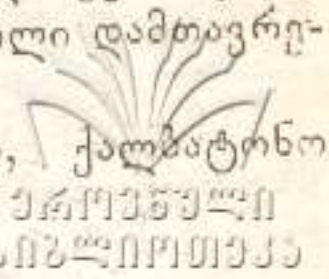 ლი დამთავრე-
, ქალბატონო
ეროვნული
ბიბლიოთეკა